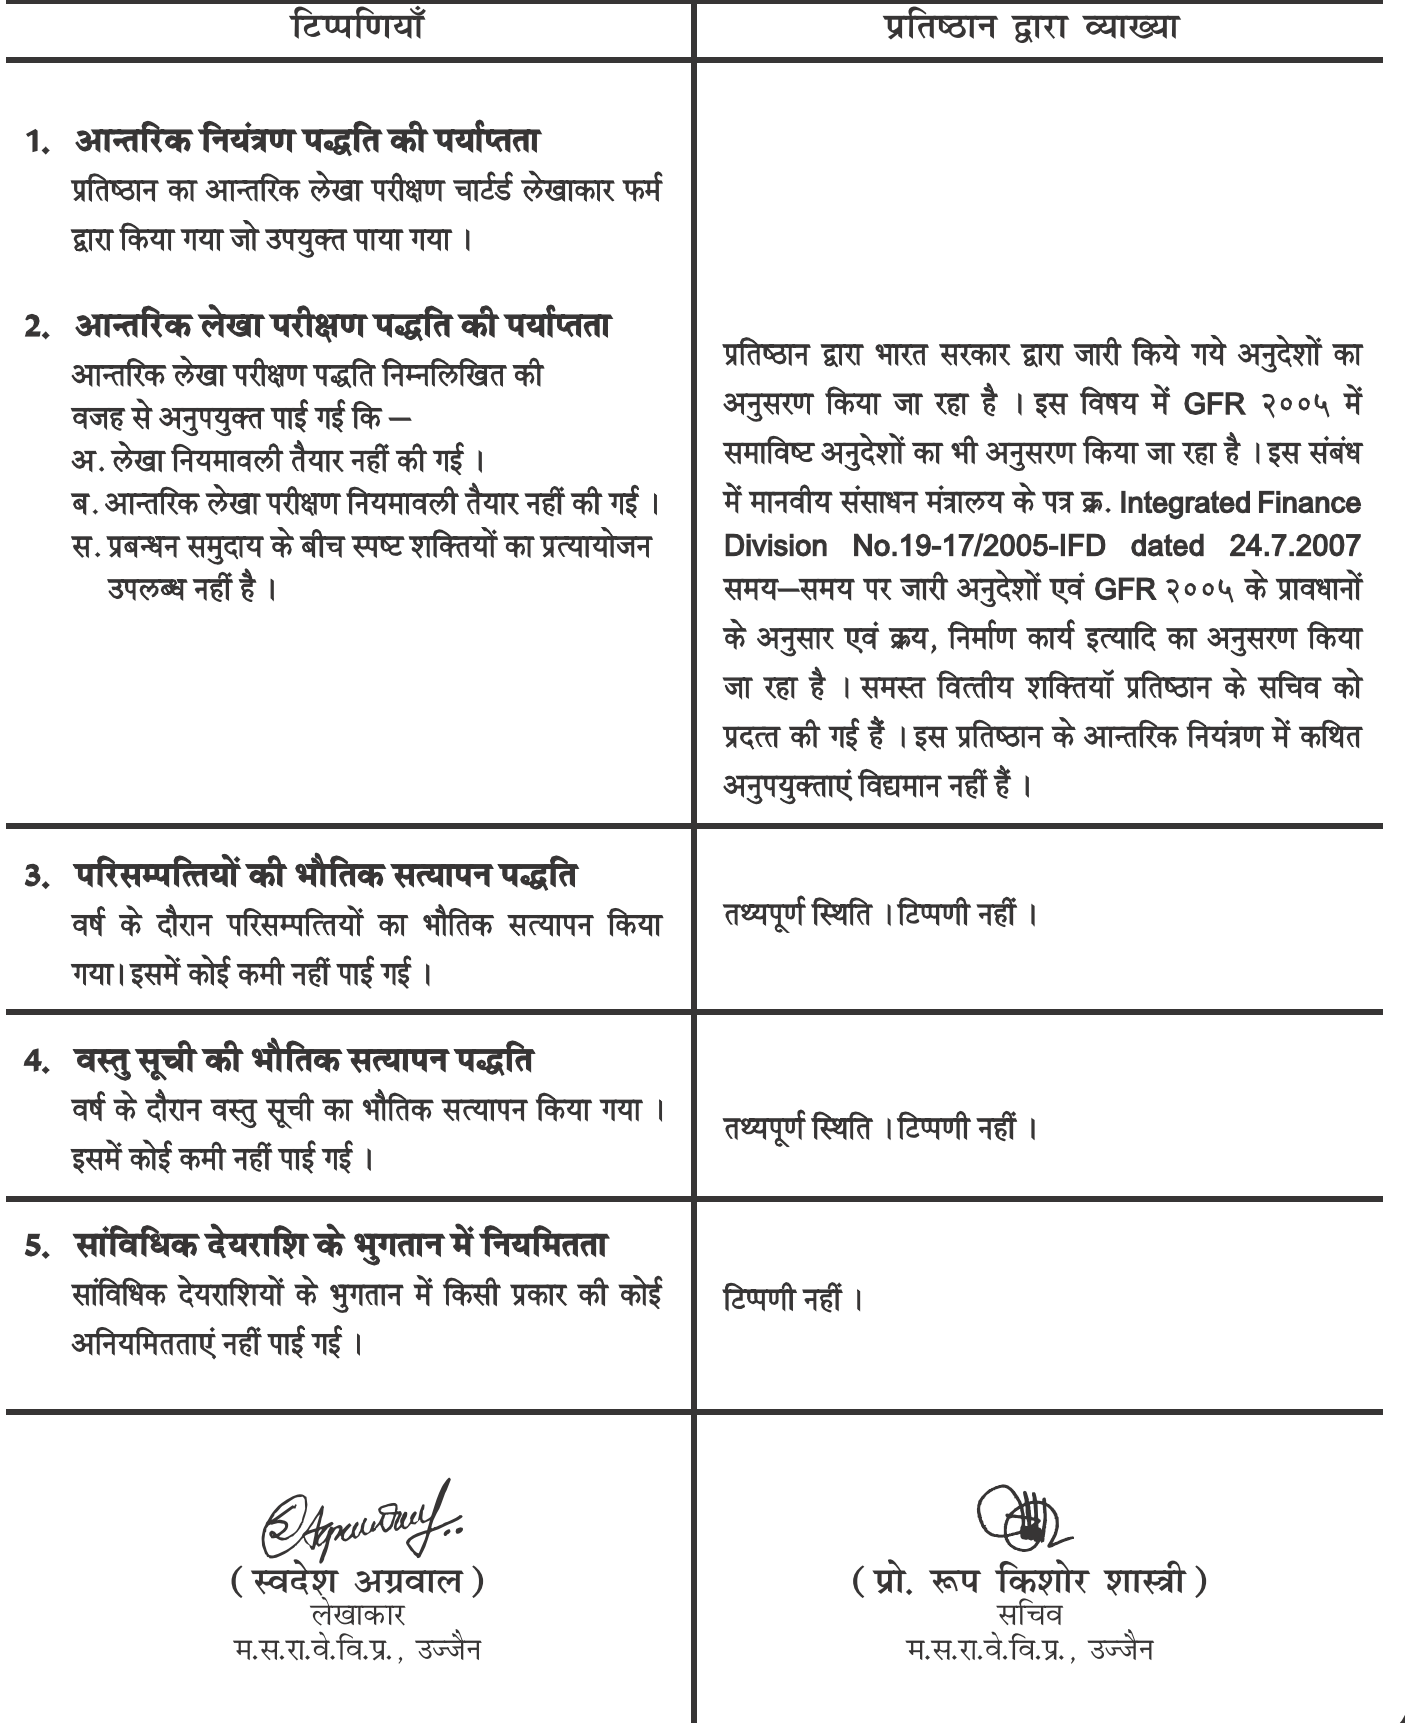 टिप्पणियाँ
प्रतिष्ठान द्वारा व्याख्या
1. आन्तरिक नियंत्रण पद्धति की पर्याप्तता
प्रतिष्ठान का आन्तरिक लेखा परीक्षण चार्टर्ड लेखाकार फर्म
द्वारा किया गया जो उपयुक्त पाया गया ।
2. आन्तरिक लेखा परीक्षण पद्धति की पर्याप्तता
आन्तरिक लेखा परीक्षण पद्धति निम्नलिखित की
वजह से अनुपयुक्त पाई गई कि –
अ. लेखा नियमावली तैयार नहीं की गई ।
ब. आन्तरिक लेखा परीक्षण नियमावली तैयार नहीं की गई ।
स. प्रबन्धन समुदाय के बीच स्पष्ट शक्तियों का प्रत्यायोजन
उपलब्ध नहीं है ।
प्रतिष्ठान द्वारा भारत सरकार द्वारा जारी किये गये अनुदेशों का
अनुसरण किया जा रहा है । इस विषय में GFR २००५ में
समाविष्ट अनुदेशों का भी अनुसरण किया जा रहा है । इस संबंध
में मानवीय संसाधन मंत्रालय के पत्र क्र. Integrated Finance
Division No.19-17/2005-IFD dated 24.7.2007
समय–समय पर जारी अनुदेशों एवं GFR २००५ के प्रावधानों
के अनुसार एवं क्रय, निर्माण कार्य इत्यादि का अनुसरण किया
जा रहा है । समस्त वित्तीय शक्तियॉ प्रतिष्ठान के सचिव को
प्रदत्त की गई हैं । इस प्रतिष्ठान के आन्तरिक नियंत्रण में कथित
अनुपयुक्ताएं विद्यमान नहीं हैं ।
3. परिसम्पत्तियों की भौतिक सत्यापन पद्धति
वर्ष के दौरान परिसम्पत्तियों का भौतिक सत्यापन किया
गया। इसमें कोई कमी नहीं पाई गई ।
तथ्यपूर्ण स्थिति । टिप्पणी नहीं ।
4. वस्तु सूची की भौतिक सत्यापन पद्धति
वर्ष के दौरान वस्तु सूची का भौतिक सत्यापन किया गया ।
इसमें कोई कमी नहीं पाई गई ।
तथ्यपूर्ण स्थिति । टिप्पणी नहीं ।
5. सांविधिक देयराशि के भुगतान में नियमितता
सांविधिक देयराशियों के भुगतान में किसी प्रकार की कोई
अनियमितताएं नहीं पाई गई ।
टिप्पणी नहीं ।
( स्वदेश अग्रवाल )
लेखाकार
म.स.रा.वे.वि.प्र., उज्जैन
( प्रो. रूप किशोर शास्त्री )
सचिव
म.स.रा.वे.वि.प्र., उज्जैन